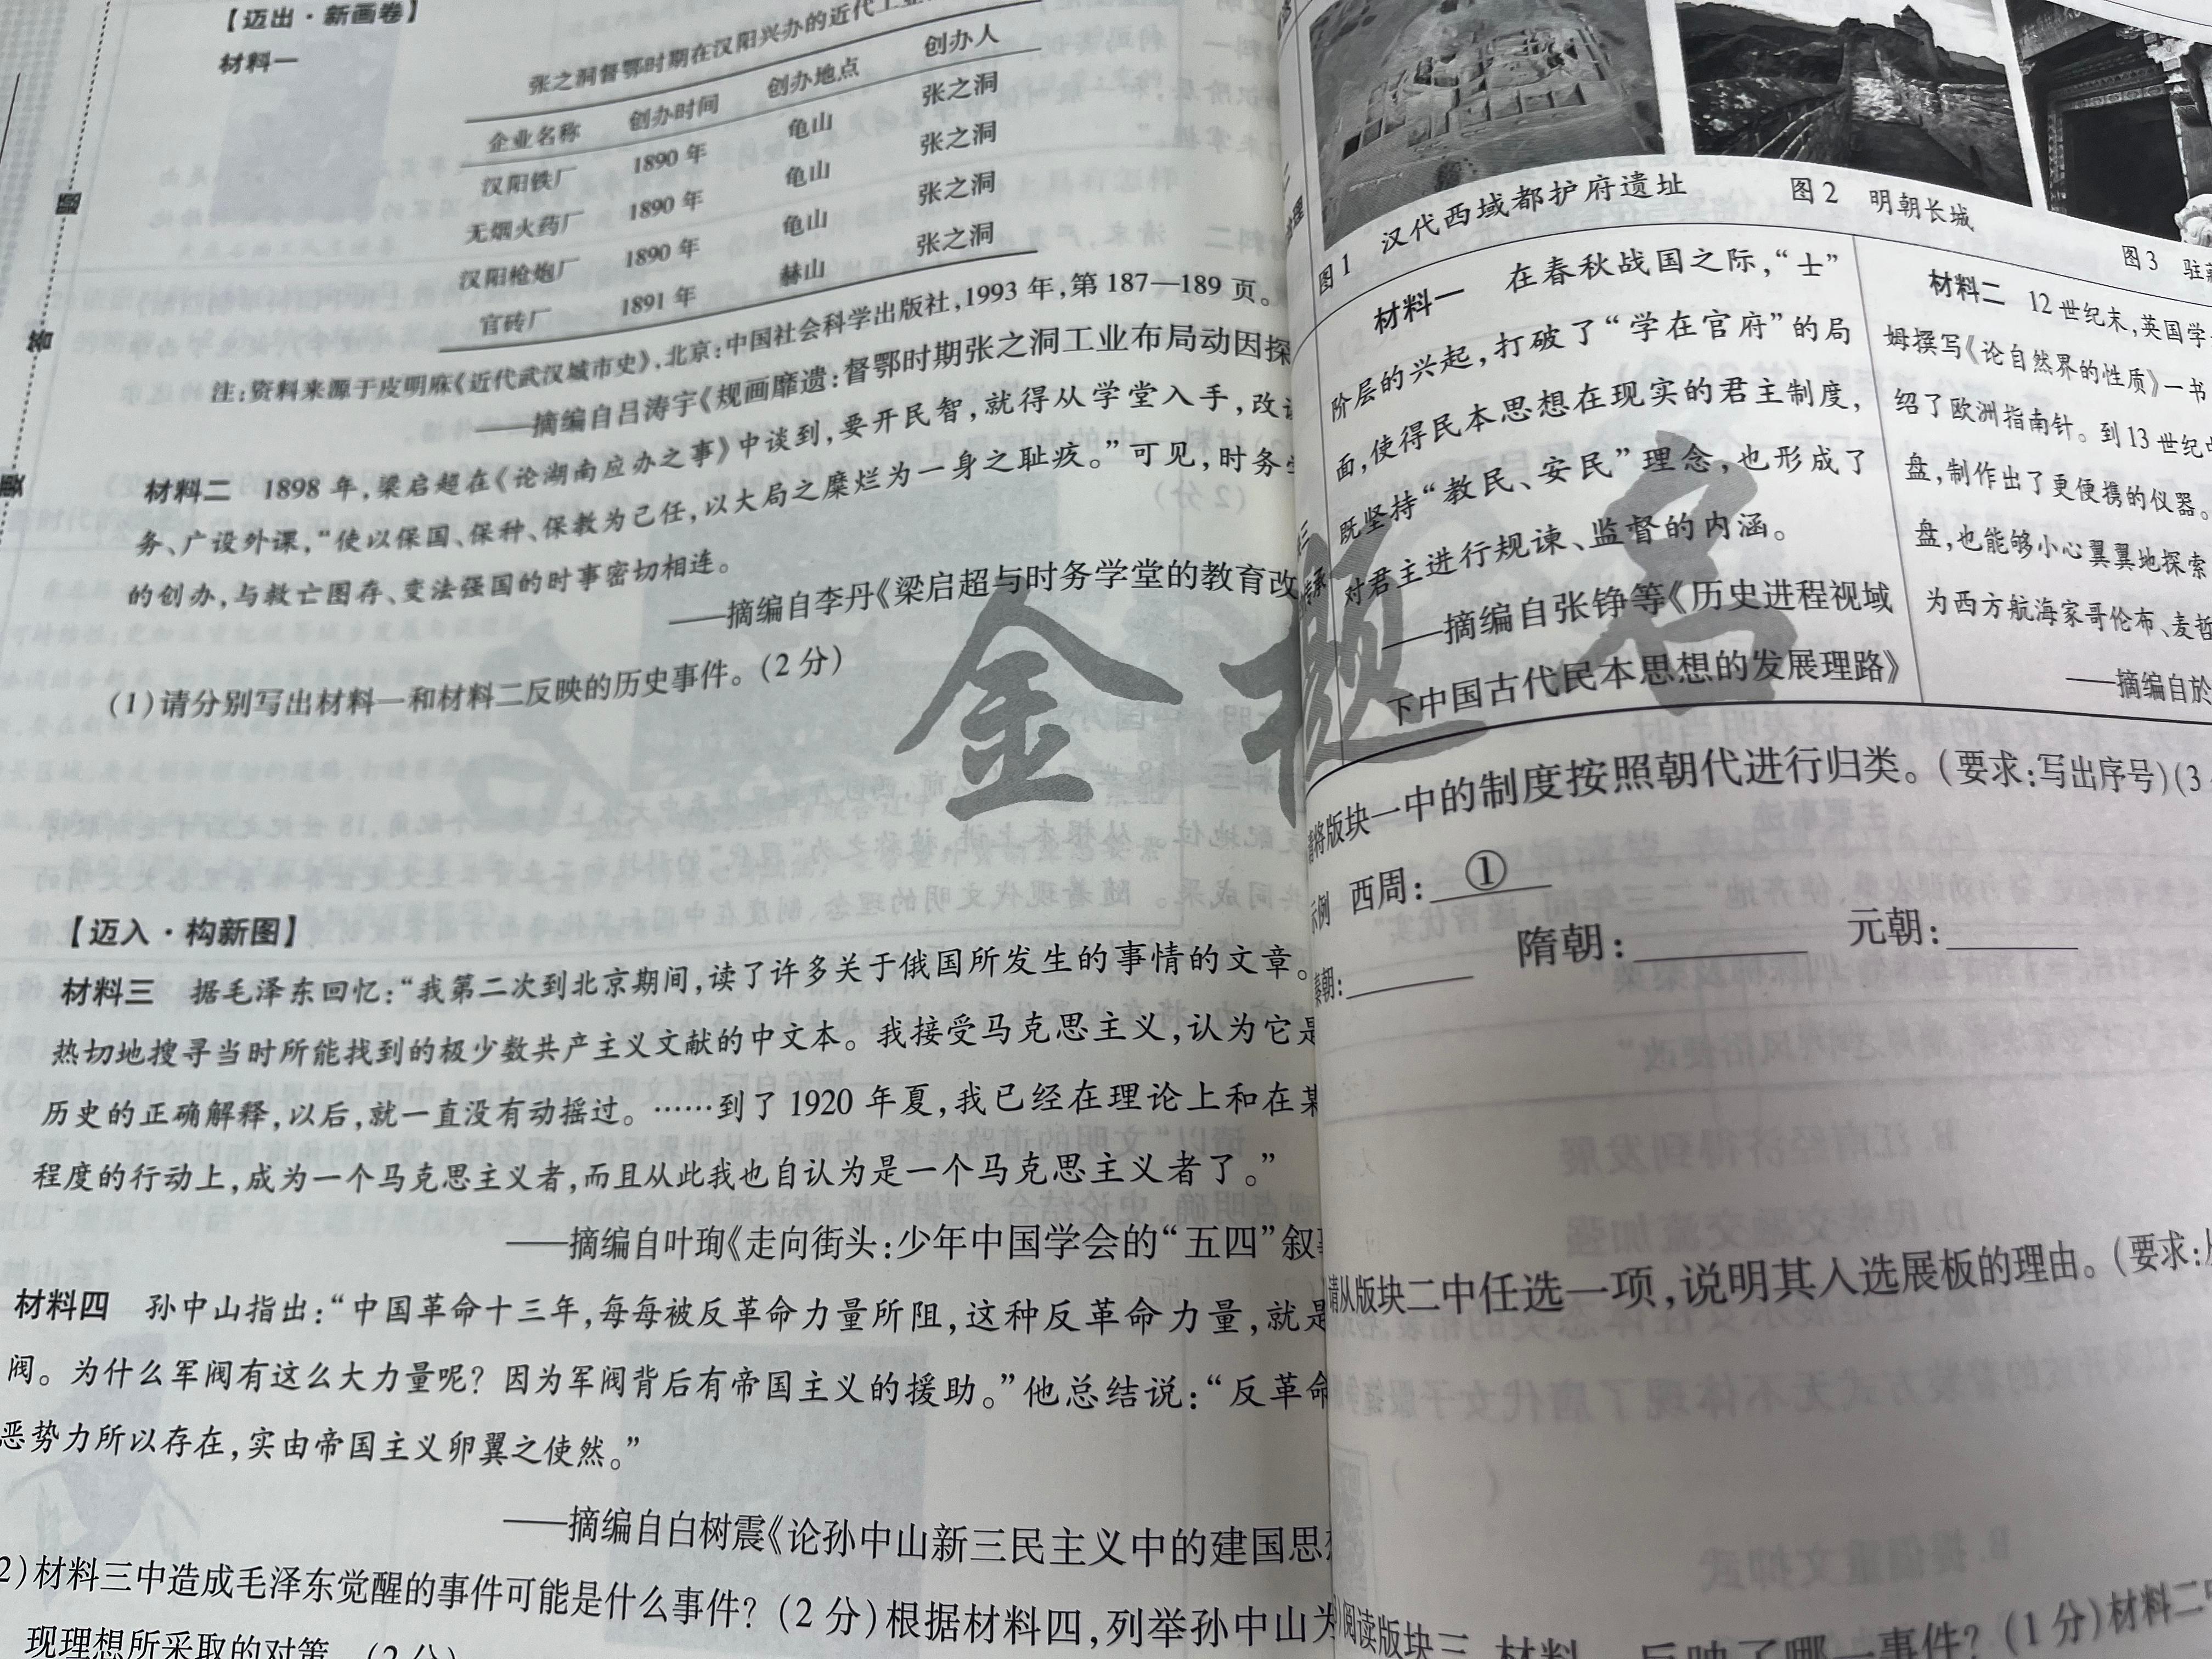 【迈出·新画卷】
材料一
张之洞督鄂时期在汉阳兴办的近代工业
企业名称 创办时间 创办地点 创办人
汉阳铁厂 1890年 龟山 张之洞
无烟火药厂 1890年 龟山 张之洞
汉阳枪炮厂 1890年 龟山 张之洞
官砖厂 1891年 赫山 张之洞
注:资料来源于皮明庥《近代武汉城市史》,北京:中国社会科学出版社,1993年,第187—189页。
——摘编自吕涛宇《规画靡遗:督鄂时期张之洞工业布局动因探
材料二 1898年,梁启超在《论湖南应办之事》中谈到,要开民智,就得从学堂入手,改
务、广设外课,“使以保国、保种、保教为己任,以大局之糜烂为一身之耻疚。”可见,时务
的创办,与救亡图存、变法强国的时事密切相连。
——摘编自李丹《梁启超与时务学堂的教育改
(1)请分别写出材料一和材料二反映的历史事件。(2分)
【迈入·构新图】
材料三 据毛泽东回忆:“我第二次到北京期间,读了许多关于俄国所发生的事情的文章。
热切地搜寻当时所能找到的极少数共产主义文献的中文本。我接受马克思主义,认为它是
历史的正确解释,以后,就一直没有动摇过。……到了1920年夏,我已经在理论上和在某
程度的行动上,成为一个马克思主义者,而且从此我也自认为是一个马克思主义者了。”
——摘编自叶珣《走向街头:少年中国学会的“五四”叙
材料四 孙中山指出:“中国革命十三年,每每被反革命力量所阻,这种反革命力量,就是
阀。为什么军阀有这么大力量呢？因为军阀背后有帝国主义的援助。”他总结说:“反革命
恶势力所以存在,实由帝国主义卵翼之使然。”
——摘编自白树震《论孙中山新三民主义中的建国思
2)材料三中造成毛泽东觉醒的事件可能是什么事件？(2分)根据材料四,列举孙中山为
现理想所采取的对策。(2分)
题
答
要
金题
图1 汉代西域都护府遗址
图2 明朝长城
图3 驻
材料一 在春秋战国之际,“士”
阶层的兴起,打破了“学在官府”的局
面,使得民本思想在现实的君主制度,
既坚持“教民、安民”理念,也形成了
对君主进行规谏、监督的内涵。
——摘编自张铮等《历史进程视域
下中国古代民本思想的发展理路》
材料二 12世纪末,英国学
姆撰写《论自然界的性质》一书
绍了欧洲指南针。到13世纪
盘,制作出了更便携的仪器。
盘,也能够小心翼翼地探索
为西方航海家哥伦布、麦哲
——摘编自於
请将版块一中的制度按照朝代进行归类。(要求:写出序号)(3
示例 西周:①
秦朝: 隋朝: 元朝:
请从版块二中任选一项,说明其入选展板的理由。(要求:
阅读版块三,材料一反映了哪一事件？(1分)材料二